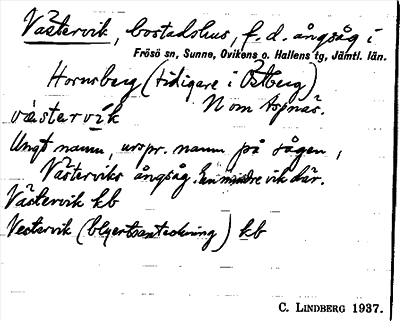 Västervik, bostadshus, f. d. ångsåg i
Frösö sn, Sunne, Ovikens o. Hallens tg, Jämtl. län.
Hornsberg (tidigare i Östberg)
N om Aspnäs.
västervik
Ungt namn, urspr. namn på sågen,
Västerviks ångsåg. En mindre vik där.
Västervik kb
Vestervik (blyertsanteckning) kb
C. LINDBERG 1937.